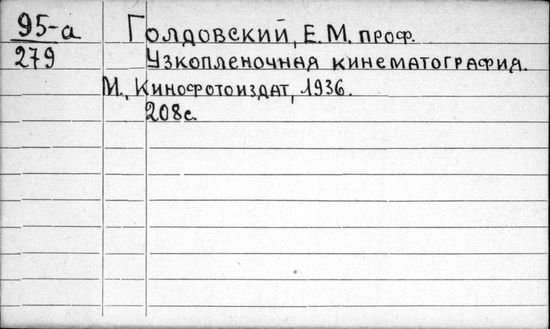 95-а Голдовский, Е.М. проф.
279 Узкопленочная кинематография.
М., Кинофотоиздат, 1936.
208с.